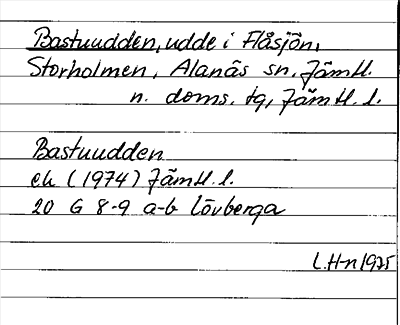 Bastuudden, udde i Flåsjön,
Storholmen, Alanäs sn, Jämtl.
n. doms. tg, Jämtl. l.
Bastuudden
ek (1974) Jämtl. l.
20 G 8-9 a-b Lövberga
L.H-n 1975